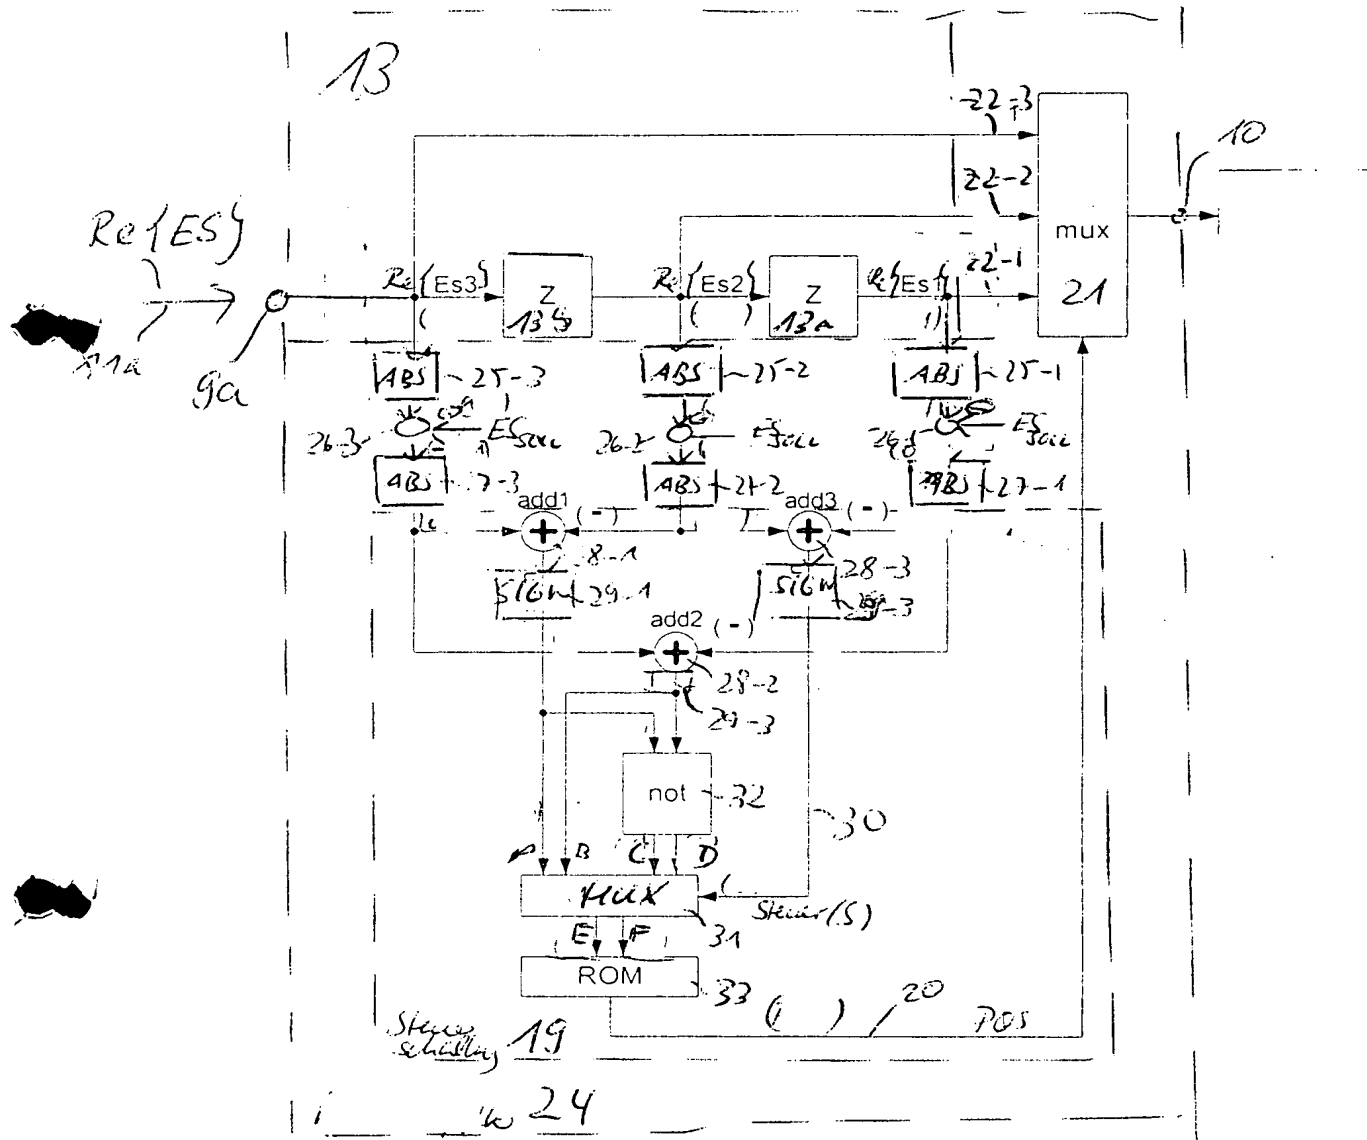 13
22-3
10
22-2
Re{ES}
mux
22-1
Re{Es3}
Z
Re{Es2}
Z
Re{Es1}
21
13b
13a
11a
9a
ABS 25-3
ABS 25-2
ABS 25-1
26-3 ES soll
26-2 ES soll
26-1 ES soll
ABS 27-3
ABS 27-2
ABS 27-1
add1 (-)
add3 (-)
28-1
28-3
SIGN 29-1
SIGN 29-3
add2 (-)
28-2
29-3
not 32
30
A B C D
MUX
Steuer(S)
31
E F
ROM
33
20
POS
Steuer
schaltung 19
24